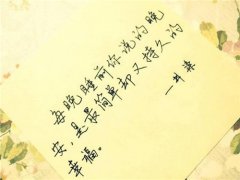 每晚睡前你说的晚
安,是最简单却又持久的
幸福。